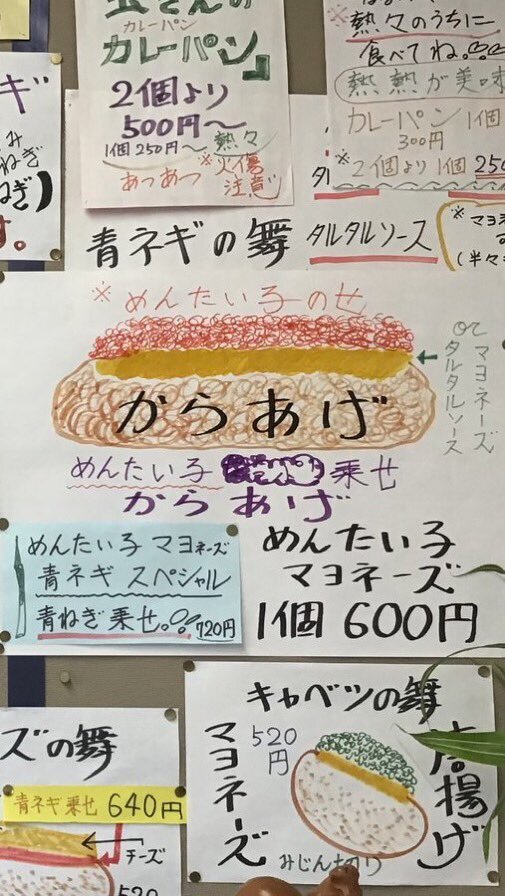 カレーパン
カレーパン』
2個より
500円〜
1個 250円〜
熱々
あつあつ
※火傷
注意
熱々のうちに
食べてね。
カレーパン 1個
300円
※2個より1個 250
ギ
ねぎ
ねぎ)
す。
青ネギの舞
タルタルソース
※マヨ
(半々
※めんたい子のせ
からあげ
or
マヨネーズ
タルタルソース
めんたい子
乗せ
からあげ
めんたい子マヨネーズ
青ネギ スペシャル
青ねぎ乗せ。
720円
めんたい子
マヨネーズ
1個 600円
ズの舞
青ネギ乗せ 640円
チーズ
520
キャベツの舞
唐揚げ
520円
マヨネーズ
みじん切り